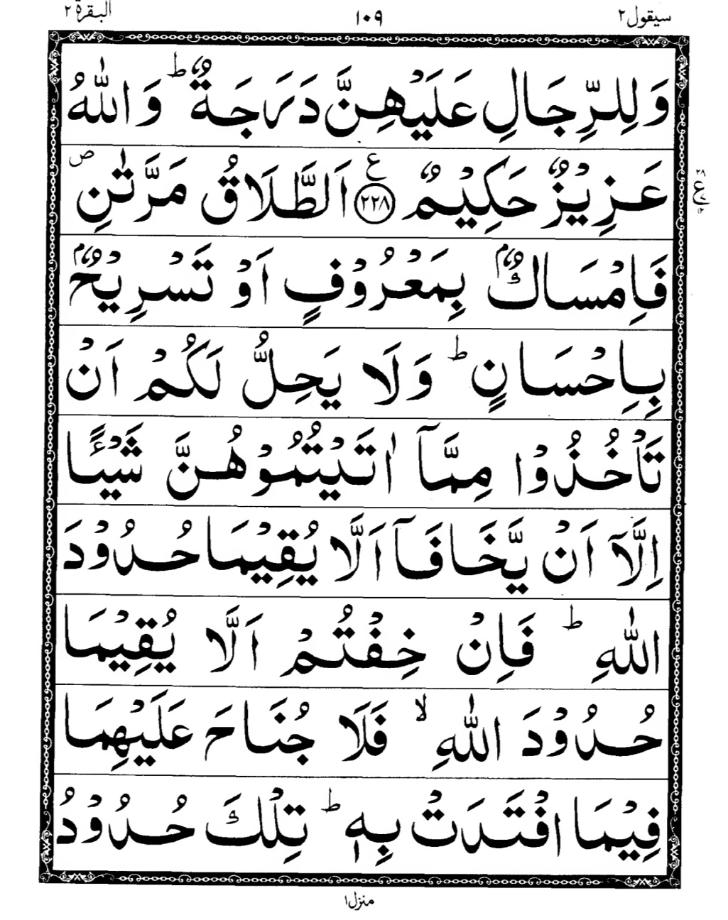 سيقول٢ ١٠٩ البقرة ٢
وَلِلرِّجَالِ عَلَيْهِنَّ دَرَجَةٌ ؕ وَاللّٰهُ
عَزِيْزٌ حَكِيْمٌ ۧ ﴿٢٢٨﴾ اَلطَّلَاقُ مَرَّتٰنِ ۪
فَاِمْسَاكٌۢ بِمَعْرُوْفٍ اَوْ تَسْرِيْحٌۢ
بِاِحْسَانٍ ؕ وَلَا يَحِلُّ لَكُمْ اَنْ
تَاْخُذُوْا مِمَّاۤ اٰتَيْتُمُوْهُنَّ شَيْـًٔا
اِلَّاۤ اَنْ يَّخَافَاۤ اَلَّا يُقِيْمَا حُدُوْدَ
اللّٰهِ ؕ فَاِنْ خِفْتُمْ اَلَّا يُقِيْمَا
حُدُوْدَ اللّٰهِ ۙ فَلَا جُنَاحَ عَلَيْهِمَا
فِيْمَا افْتَدَتْ بِهٖ ؕ تِلْكَ حُدُوْدُ
منزل١